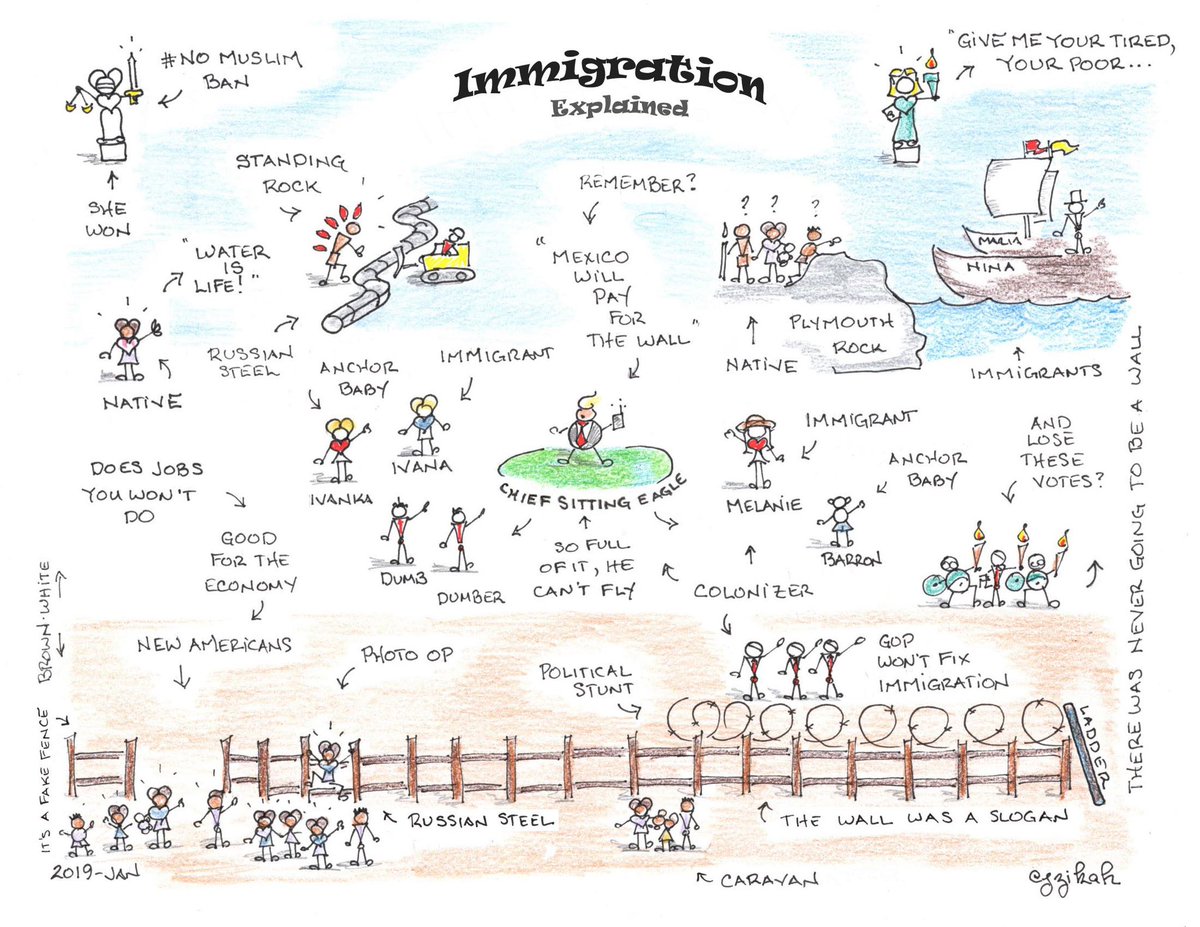 Immigration
Explained
#NO MUSLIM
BAN
SHE
WON
"GIVE ME YOUR TIRED,
YOUR POOR...
STANDING
ROCK
REMEMBER?
"WATER
IS
LIFE!"
"MEXICO
WILL
PAY
FOR
THE WALL"
MARIA
NINA
PLYMOUTH
ROCK
NATIVE
IMMIGRANTS
RUSSIAN
STEEL
NATIVE
ANCHOR
BABY
IMMIGRANT
IVANA
IVANKA
CHIEF SITTING EAGLE
IMMIGRANT
MELANIE
ANCHOR
BABY
BARRON
AND
LOSE
THESE
VOTES?
DOES JOBS
YOU WON'T
DO
GOOD
FOR THE
ECONOMY
DUMB
DUMBER
SO FULL
OF IT, HE
CAN'T FLY
COLONIZER
BROWN·WHITE
NEW AMERICANS
PHOTO OP
POLITICAL
STUNT
GOP
WON'T FIX
IMMIGRATION
LADDER
THERE WAS NEVER GOING TO BE A WALL
IT'S A FAKE FENCE
RUSSIAN STEEL
THE WALL WAS A SLOGAN
2019-JAN
CARAVAN